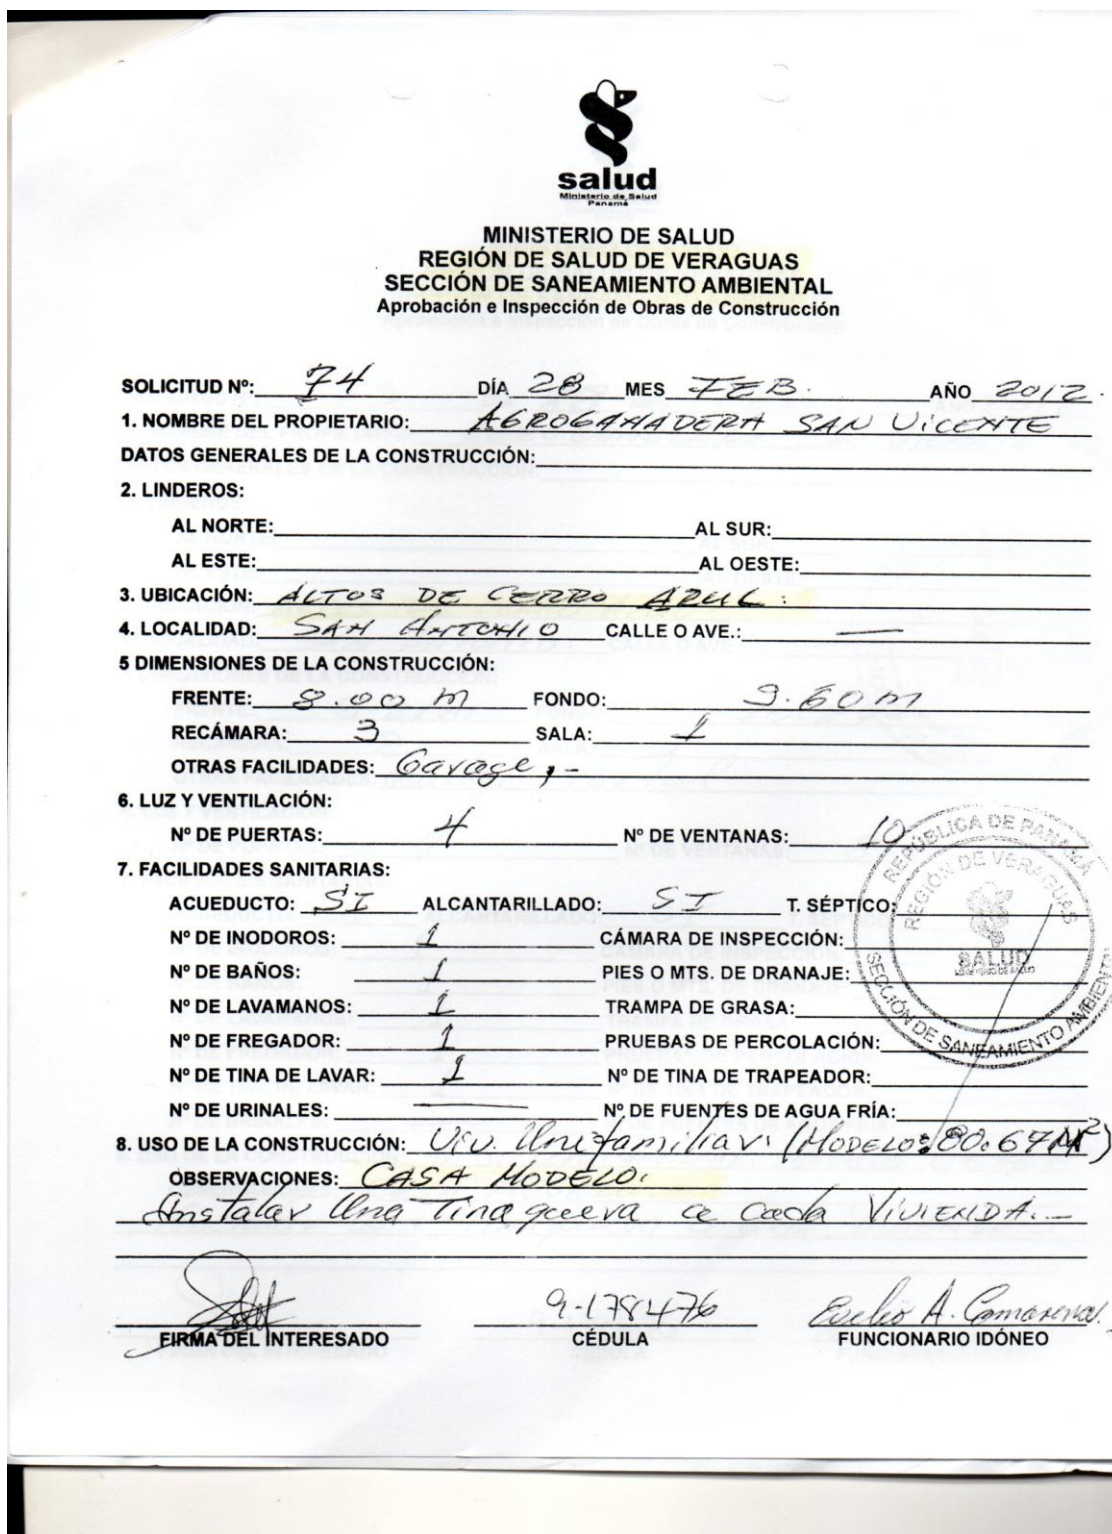 salud
Ministerio de Salud
Panamá
MINISTERIO DE SALUD
REGIÓN DE SALUD DE VERAGUAS
SECCIÓN DE SANEAMIENTO AMBIENTAL
Aprobación e Inspección de Obras de Construcción
SOLICITUD Nº: 74 DÍA 28 MES FEB. AÑO 2012.
1. NOMBRE DEL PROPIETARIO: AGROGANADERA SAN VICENTE
DATOS GENERALES DE LA CONSTRUCCIÓN:
2. LINDEROS:
AL NORTE: AL SUR:
AL ESTE: AL OESTE:
3. UBICACIÓN: ALTOS DE CERRO AZUL.
4. LOCALIDAD: SAN ANTONIO CALLE O AVE.: —
5 DIMENSIONES DE LA CONSTRUCCIÓN:
FRENTE: 8.00 m FONDO: 9.60 m
RECÁMARA: 3 SALA: 1
OTRAS FACILIDADES: Garage,-
6. LUZ Y VENTILACIÓN:
Nº DE PUERTAS: 4 Nº DE VENTANAS: 10
7. FACILIDADES SANITARIAS:
ACUEDUCTO: SI ALCANTARILLADO: SI T. SÉPTICO:
Nº DE INODOROS: 1 CÁMARA DE INSPECCIÓN:
Nº DE BAÑOS: 1 PIES O MTS. DE DRANAJE:
Nº DE LAVAMANOS: 1 TRAMPA DE GRASA:
Nº DE FREGADOR: 1 PRUEBAS DE PERCOLACIÓN:
Nº DE TINA DE LAVAR: 1 Nº DE TINA DE TRAPEADOR:
Nº DE URINALES: — Nº DE FUENTES DE AGUA FRÍA:
REPÚBLICA DE PANAMÁ
REGIÓN DE VERAGUAS
SALUD
MINISTERIO DE SALUD
SECCIÓN DE SANEAMIENTO AMBIENTAL
8. USO DE LA CONSTRUCCIÓN: Viv. Unifamiliar. (MODELO: 80.67 M²)
OBSERVACIONES: CASA MODELO.
Instalar Una Tinaquera a cada VIVIENDA.-
9-178476
FIRMA DEL INTERESADO CÉDULA FUNCIONARIO IDÓNEO